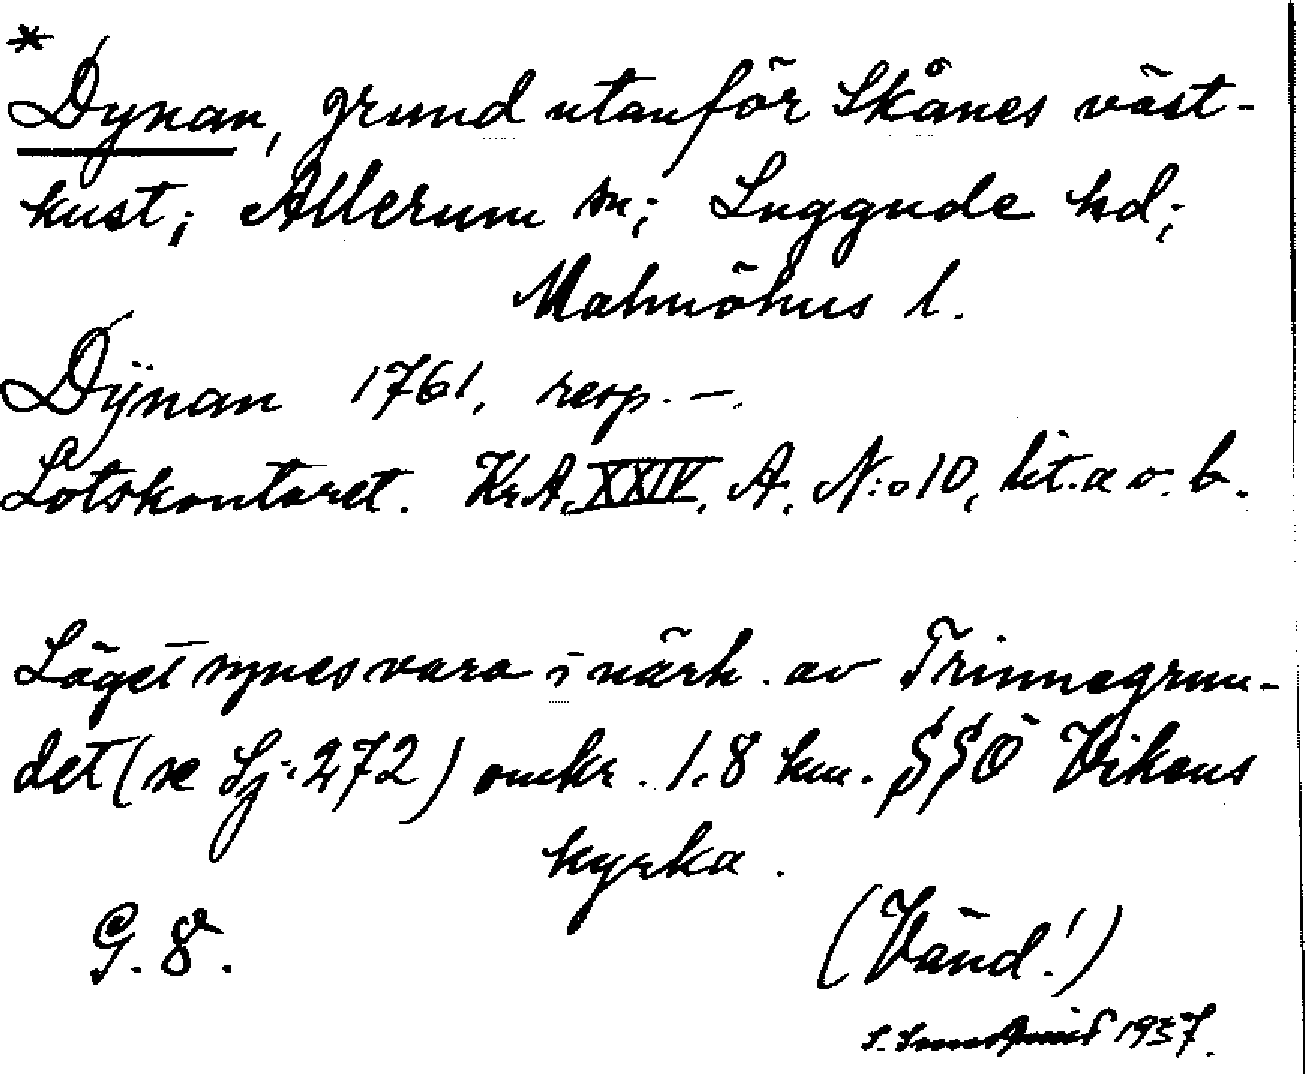 *
Dynan, grund utanför Skånes väst-
kust; Allerum sn; Luggude hd;
Malmöhus l.
Dÿnan 1761, resp. —.
Lotskontoret. Kr.A. XXIV. A. N:o 10, lit. a o. b.
Läget synes vara i närh. av Trinnegrun-
det (se Sj: 272) omkr. 1.8 km. SSÖ Vikens
kyrka.
G. 8.
(Vänd!)
1937.